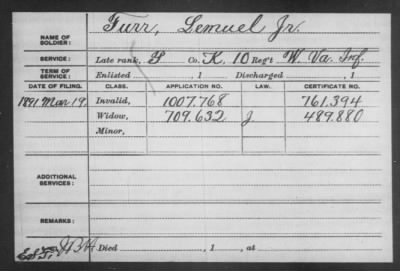 NAME OF SOLDIER: Furr, Lemuel Jr.
SERVICE: Late rank, P Co. K, 10 Reg't W. Va. Inf.
TERM OF SERVICE: Enlisted , 1 Discharged , 1
DATE OF FILING. CLASS. APPLICATION NO. LAW. CERTIFICATE NO.
Invalid, 1007.768 761.394
1891 Mar 19, Widow, 709.632 J 489.880
Minor,
ADDITIONAL SERVICES:
REMARKS:
Died , 1 , at